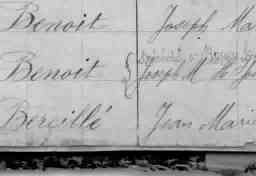 Benoit Joseph Ma
Benoit { Joseph M
Bereillé Jean Marie